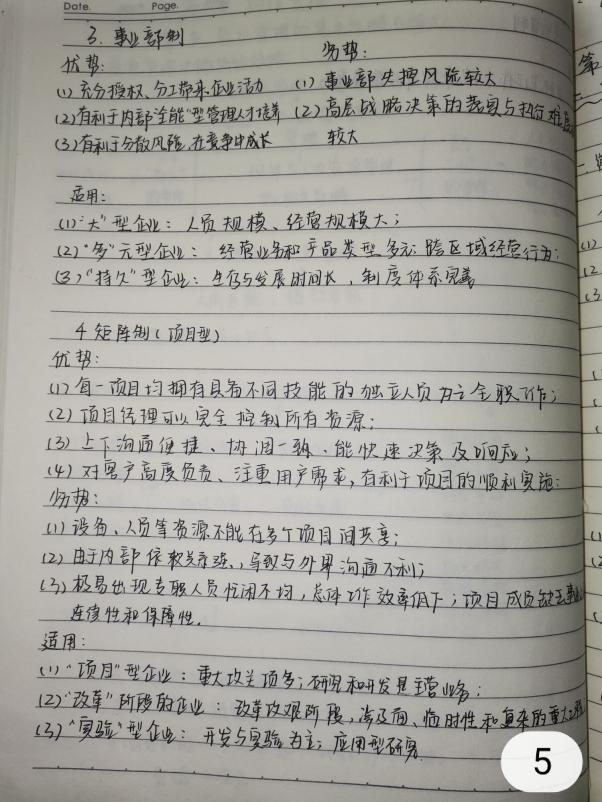 Date. Page.
3. 事业部制
优势: 劣势:
(1) 充分授权、分工带来企业活力 (1) 事业部失控风险较大
(2) 有利于内部"全能"型管理人才培养 (2) 高层战略决策的落实与执行难度
(3) 有利于分散风险,在竞争中成长 较大
适用:
(1) "大"型企业: 人员规模、经营规模大;
(2) "多"元型企业: 经营业务和产品类型多元 跨区域经营行为;
(3) "持久"型企业: 生存与发展时间长, 制度体系完善
4 矩阵制 (项目型)
优势:
(1) 每一项目均拥有具备不同技能的独立人员为之全职工作;
(2) 项目经理可以完全控制所有资源;
(3) 上下沟通便捷、协调一致、能快速决策及响应;
(4) 对客户高度负责、注重用户需求, 有利于项目的顺利实施;
劣势:
(1) 设备、人员等资源不能在多个项目间共享;
(2) 由于内部依赖关系强, 导致与外界沟通不利;
(3) 极易出现专职人员忙闲不均, 总体工作效率低下; 项目成员缺乏事业
连续性和保障性.
适用:
(1) "项目"型企业: 重大攻关项多; 研究和开发是主营业务;
(2) "改革"阶段的企业: 改革攻艰阶段, 涉及面、临时性和复杂的重大工程
(3) "实验"型企业: 开发与实验为主; 应用型研究.
5